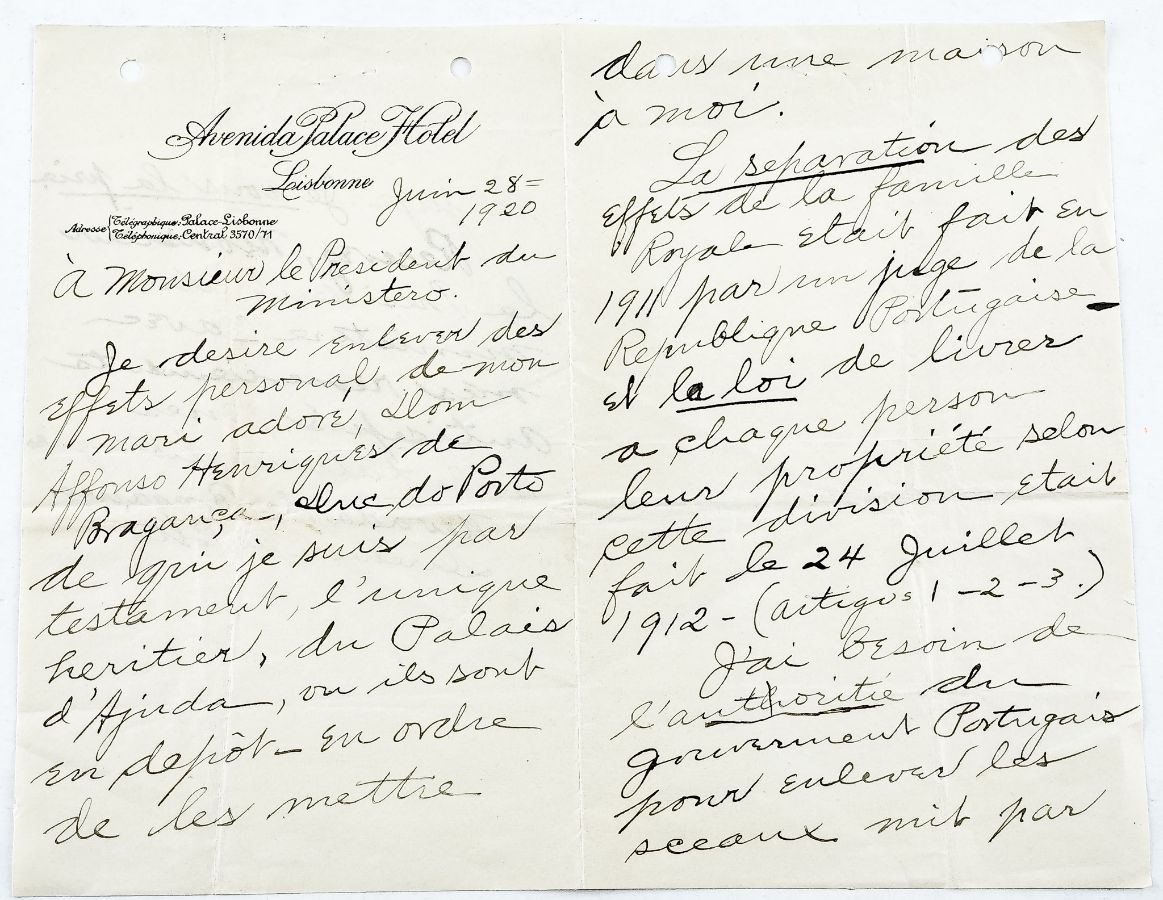 Avenida Palace Hotel
Lisbonne
Juin 28=
1920
Adresse { Télégraphique: Palace-Lisbonne
Téléphonique: Central 3570/71
À Monsieur le President du
Ministero.
Je desire enlever des
effets personal de mon
mari adoré, Dom
Affonso Henriques de
Bragança-, Duc do Porto
de qui je suis par
testament, l'unique
heritier, du Palais
d'Ajuda, ou ils sont
en depôt - en ordre
de les mettre
dans une maison
à moi.
La separation des
effets de la famille
Royale etait fait en
1911 par un juge de la
Republique Portugaise
et la loi de livrer
a chaque person
leur propriété selon
cette division etait
fait le 24 Juillet
1912 - (artigos 1-2-3.)
J'ai besoin de
l'authoritie du
gouverment Portugais
pour enlever les
sceaux mit par